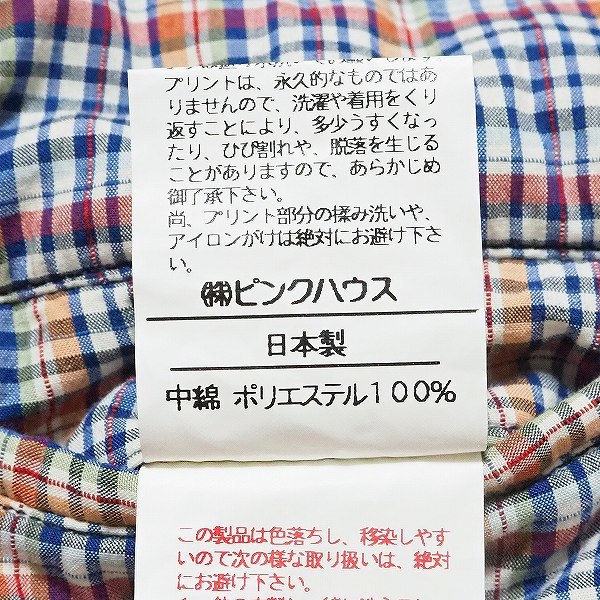 プリントは、永久的なものではあ
りませんので、洗濯や着用をくり
返すことにより、多少うすくなっ
たり、ひび割れや、脱落を生じる
ことがありますので、あらかじめ
御了承下さい。
尚、プリント部分の揉み洗いや、
アイロンがけは絶対にお避け下さ
い。
㈱ピンクハウス
日本製
中綿 ポリエステル100%
この製品は色落ちし、移染しやす
いので次の様な取り扱いは、絶対
にお避け下さい。